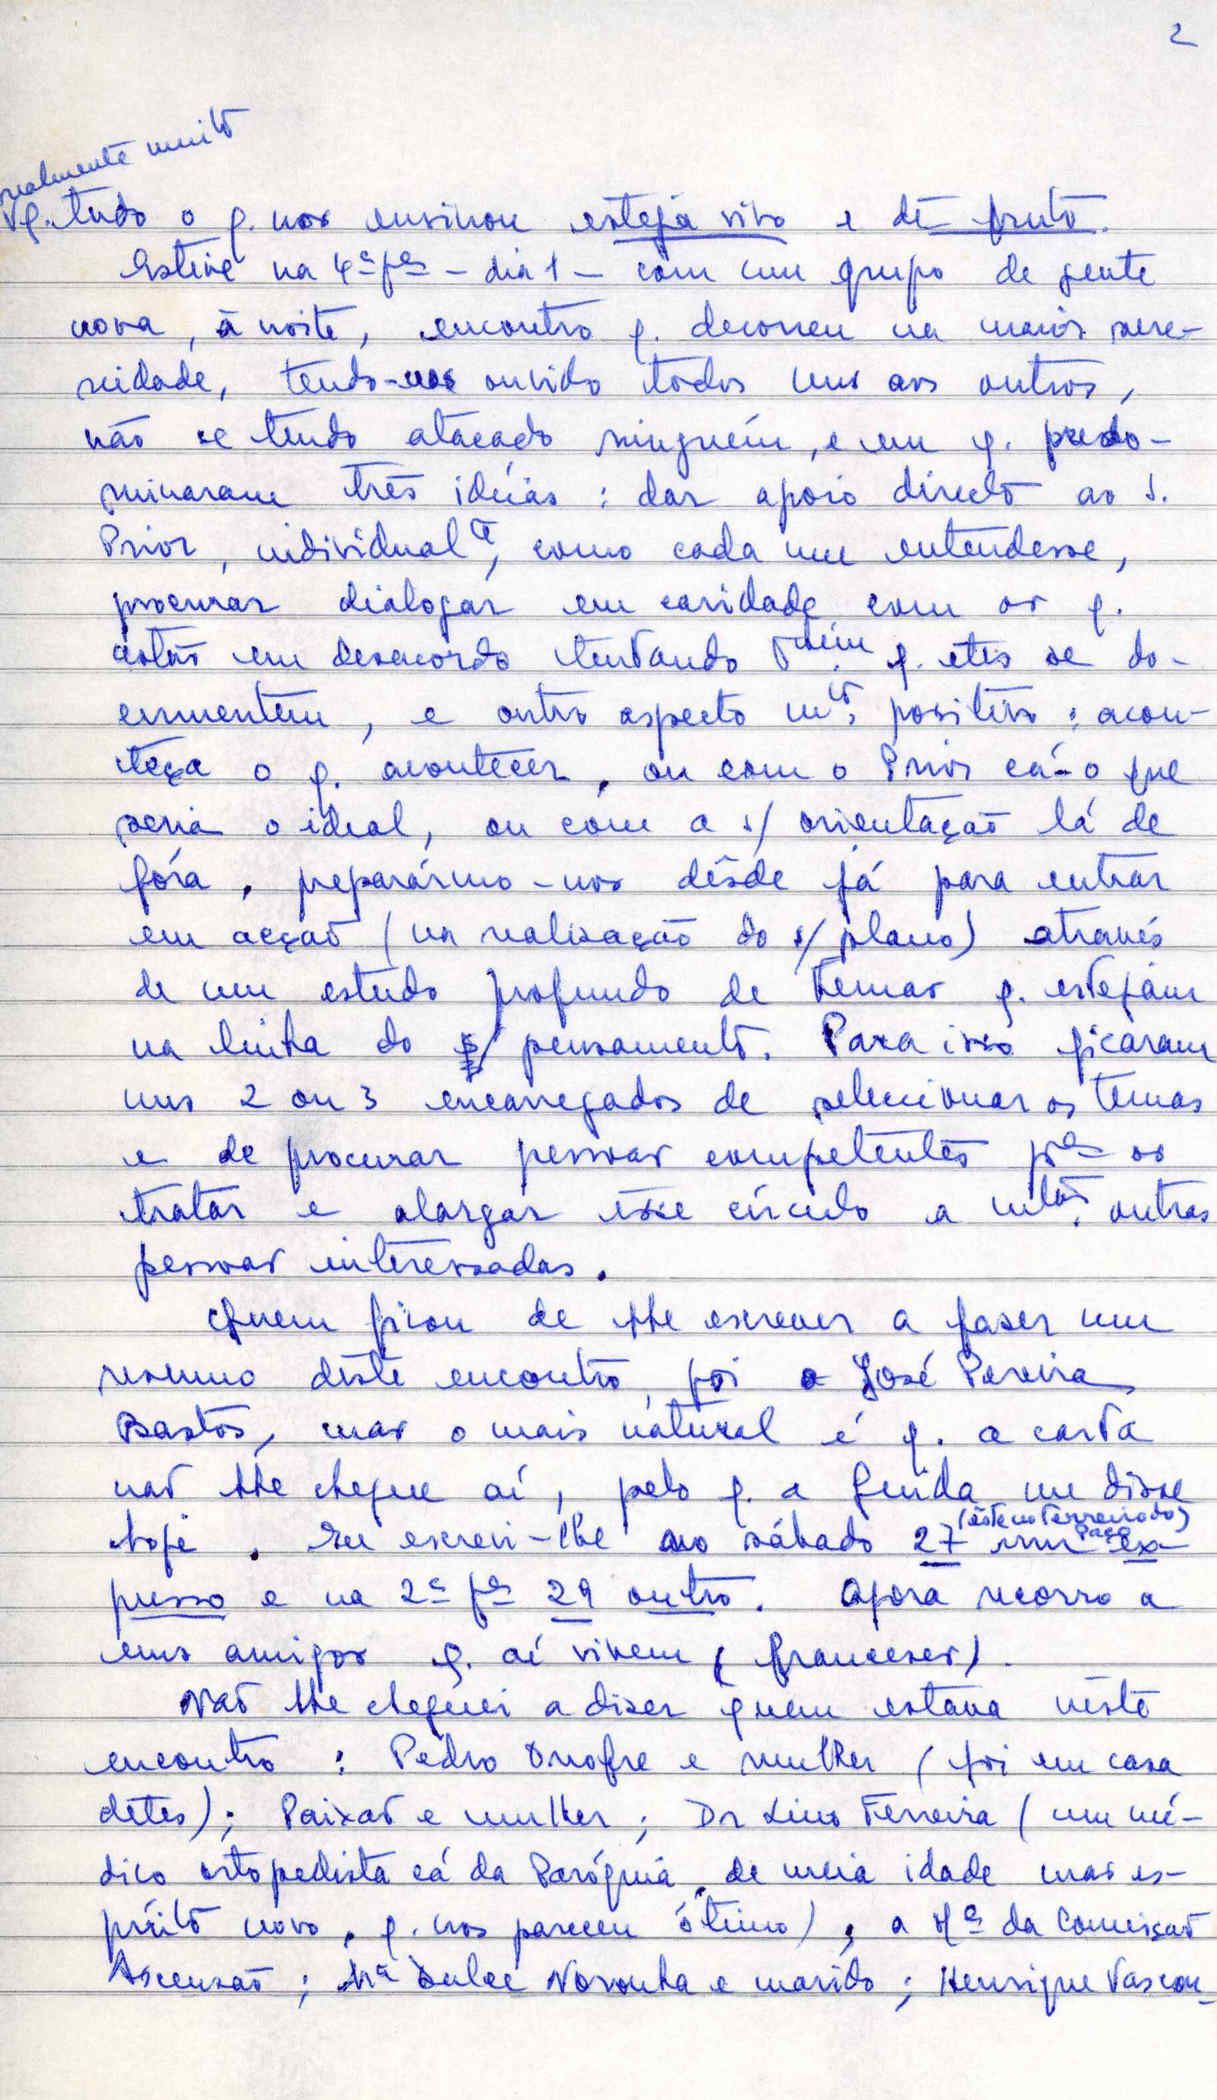 2
realmente muito
q. tudo o q. nos ensinou esteja vivo e dê fruto.
Estive na 4ª fª - dia 1 - com um grupo de gente
nova, à noite, encontro q. decorreu na maior sere-
nidade, tendo-nos ouvido todos uns aos outros,
não se tendo atacado ninguém, e em q. predo-
minaram três idéias: dar apoio directo ao S.
Prior, individualte, como cada um entendesse,
procurar dialogar em caridade com os q.
estão em desacordo tentando tbém q. eles se do-
cumentem, e outro aspecto mto. positivo: acon-
teça o q. acontecer, ou com o Prior cá - o que
seria o ideal, ou com a s/ orientação lá de
fóra, preparármo-nos désde já para entrar
em acção (na realisação do s/ plano) através
de um estudo profundo de temas q. estejam
na linha do s/ pensamento. Para isso ficaram
uns 2 ou 3 encarregados de selecionar os temas
e de procurar pessoas competentes pª os
tratar e alargar êsse círculo a mtas. outras
pessoas interessadas.
Quem ficou de lhe escrever a fazer um
resumo dêste encontro, foi o José Pereira
Bastos, mas o mais natural é q. a carta
não lhe chegue aí, pelo q. a Guida me disse
hoje. Eu escrevi-lhe no sábado 27 (êste no Terreiro do Paço) um ex-
presso e na 2ª fª 29 outro. Agora recorro a
uns amigos q. aí vivem (franceses).
Não lhe cheguei a dizer quem estava nêste
encontro: Pedro Onofre e mulher (foi em casa
deles); Paixão e mulher; Dr Lino Ferreira (um mé-
dico ortopedista cá da Paróquia, de meia idade mas es-
pírito novo, q. nos pareceu ótimo); a Mª da Conceição
Ascensão; Mª Dulce Noronha e marido; Henrique Vascon-